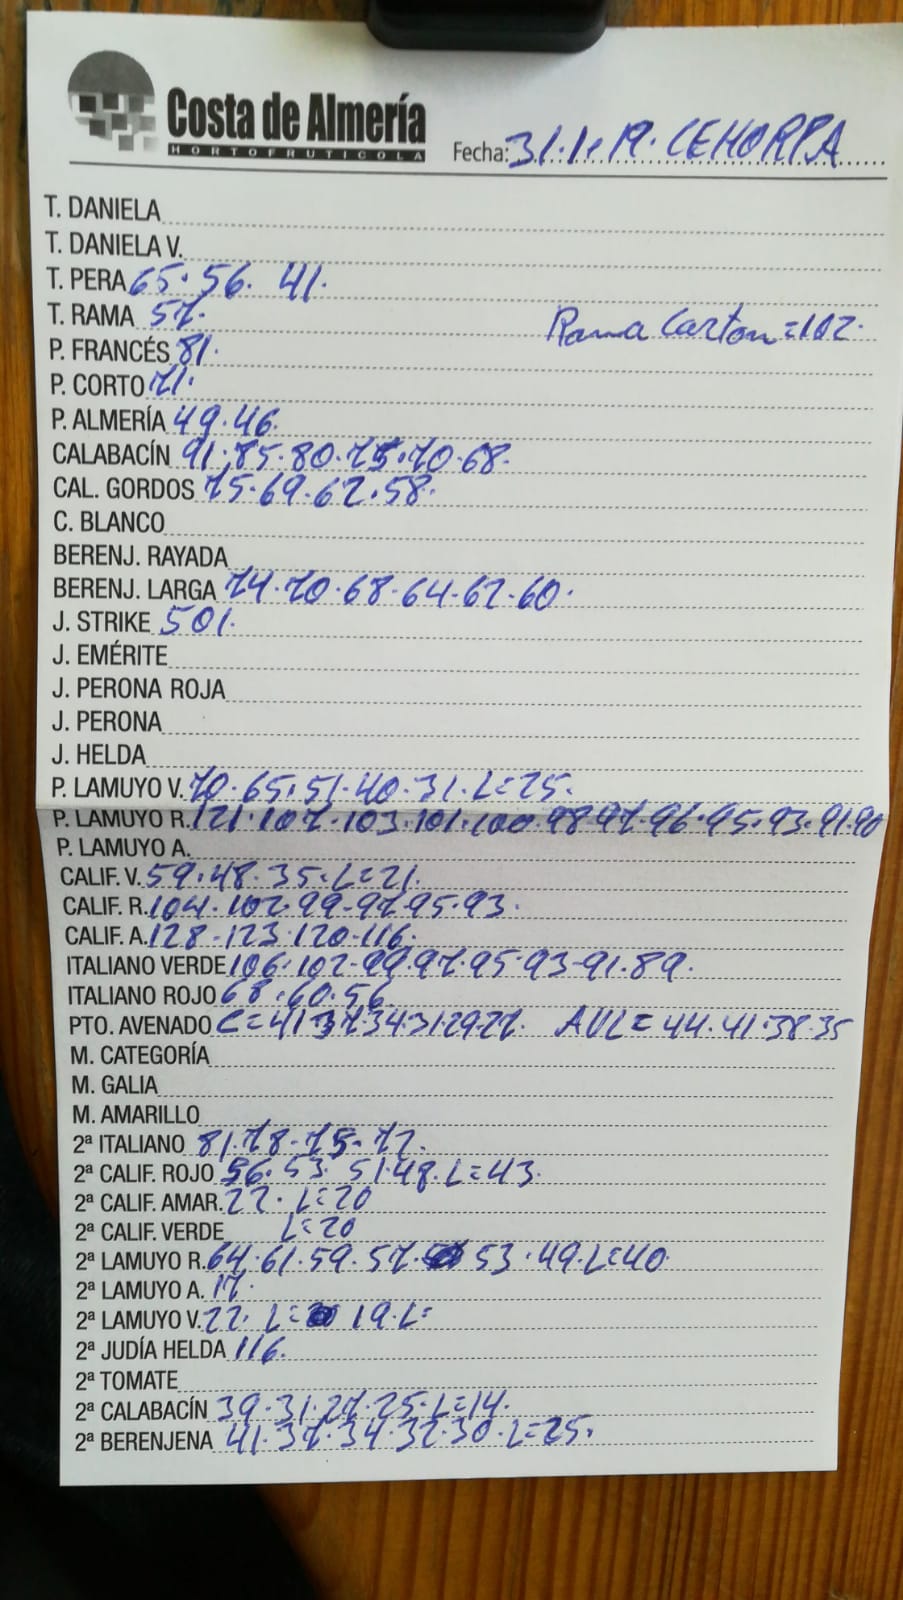 Costa de Almería
HORTOFRUTICOLA
Fecha: 31.1.19. CEHORPA
T. DANIELA
T. DANIELA V.
T. PERA 65.56. 41.
T. RAMA 57. Rama Carton=102.
P. FRANCÉS 81.
P. CORTO 71.
P. ALMERÍA 49.46.
CALABACÍN 91.85.80.75.70.68.
CAL. GORDOS 75.69.62.58.
C. BLANCO
BERENJ. RAYADA
BERENJ. LARGA 74.70.68.64.62.60.
J. STRIKE 501.
J. EMÉRITE
J. PERONA ROJA
J. PERONA
J. HELDA
P. LAMUYO V. 70.65.51.40.31.L=25.
P. LAMUYO R. 121.107.103.101.100.98.97.96.95.93.91.90
P. LAMUYO A.
CALIF. V. 59.48.35.L=21.
CALIF. R. 104.102.99-97.95.93.
CALIF. A. 128-123.120-116.
ITALIANO VERDE 106.102-99.97.95-93-91.89.
ITALIANO ROJO 68.60.56
PTO. AVENADO C=41.37.34.31.29.27. AVL=44.41.38.35
M. CATEGORÍA
M. GALIA
M. AMARILLO
2ª ITALIANO 81.78-75-72.
2ª CALIF. ROJO 56.53. 51.48.L=43.
2ª CALIF. AMAR. 22. L=20
2ª CALIF. VERDE L=20
2ª LAMUYO R. 64.61.59.57. 53.49.L=40.
2ª LAMUYO A. 17.
2ª LAMUYO V. 22. L= 19.L=
2ª JUDÍA HELDA 116.
2ª TOMATE
2ª CALABACÍN 39.31.27.25-L=14.
2ª BERENJENA 41.37.34.32.30.L=25.